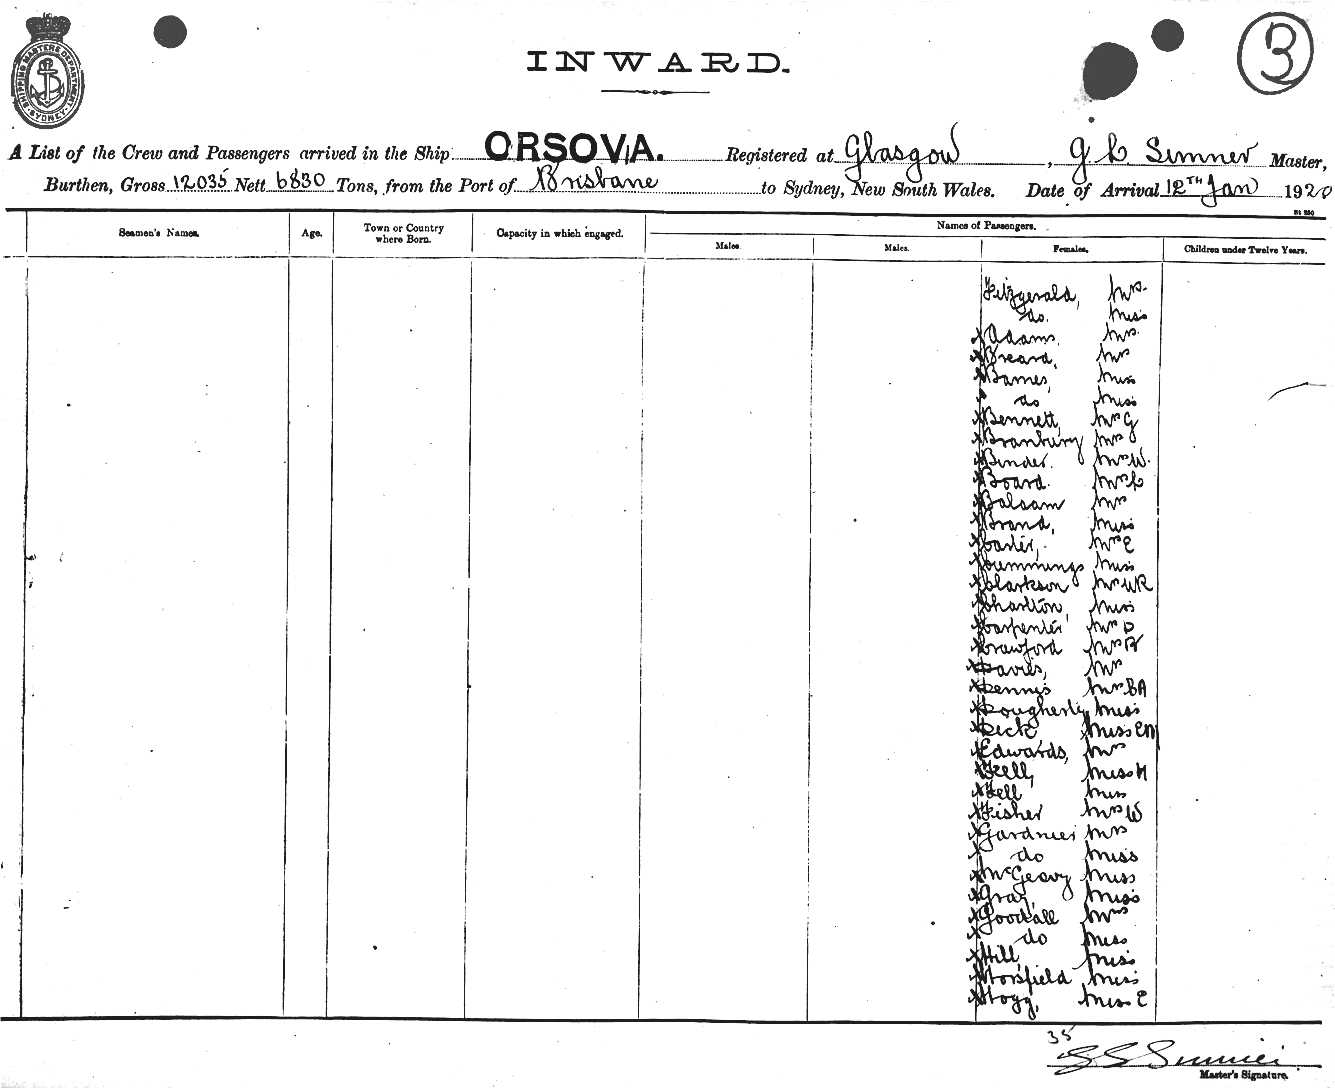 SHIPPING MASTERS DEPARTMENT
SYDNEY
3
INWARD.
A List of the Crew and Passengers arrived in the Ship ORSOVA. Registered at Glasgow, G L Sumner Master,
Burthen, Gross 12035 Nett 6830 Tons, from the Port of Brisbane to Sydney, New South Wales. Date of Arrival 12TH Jan 1920
Seamen's Names. Age. Town or Country where Born. Capacity in which engaged. Names of Passengers.
Males. Males. Females. Children under Twelve Years.
Fitzgerald, Mrs.
do. Miss
x Adams, Mrs.
x Breard, Mrs
x Barnes, Miss
do Miss
x Bennett, Mrs G
x Branbury Mrs
x Binder. Mrs W.
x Board. Mrs L
x Balsam Mrs
x Brand, Miss
x Carter, Mrs E
x Cummings Miss
x Clarkson Mrs WR
x Charlton Miss
x Carpenter Mrs D
x Crawford Mrs A
x Davies, Mrs
x Dennis Mrs BA
x Dougherty Miss
x Dick Miss EM
x Edwards, Mrs
x Fell, Miss H
x Fell Miss
x Fisher Mrs W
x Gardner Mrs
x do Miss
x McGeavy Miss
x Gray, Miss
x Goodall Mrs
x do Miss
x Hill, Miss
x Horsfield Miss
x Hogg, Miss E
35
G L Sumner
Master's Signature.